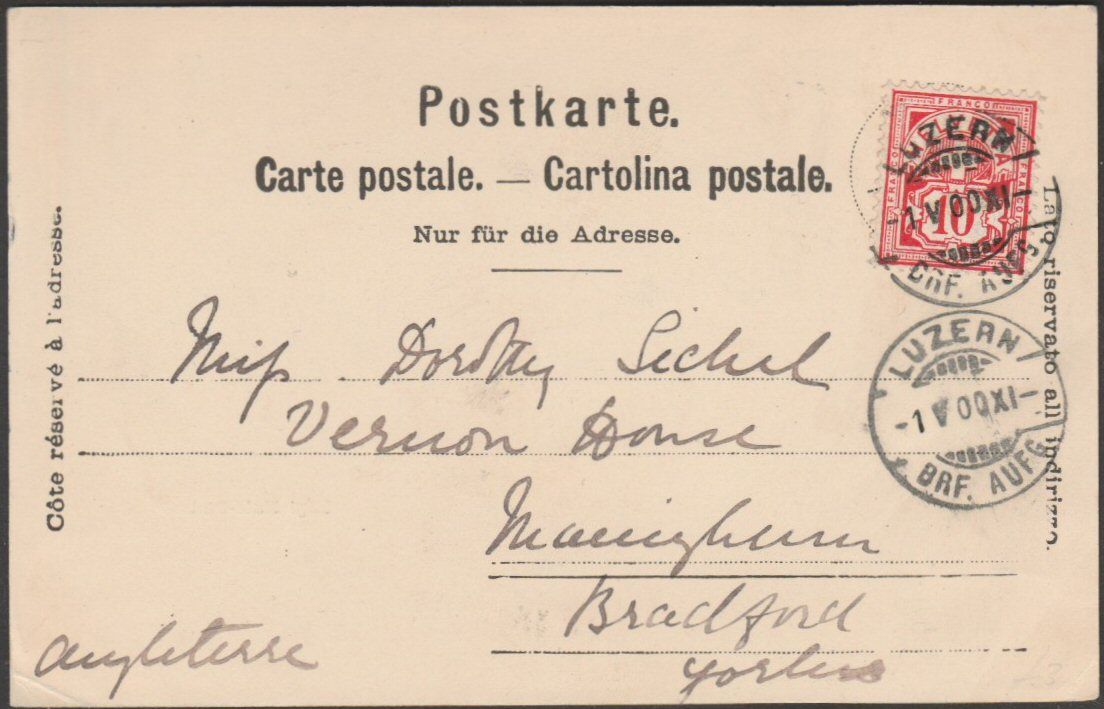 Postkarte.
Carte postale. — Cartolina postale.
Nur für die Adresse.
Côte réservé à l'adresse.
Lato riservato all indirizzo.
FRANCO
FRANCO
FRANCO
10
LUZERN
-1 V 00 XI-
BRF. AUFG
LUZERN
-1 V 00 XI-
BRF. AUFG
Miss Dorothy Sichel
Vernon House
Manningham
Bradford
Yorks
Angleterre